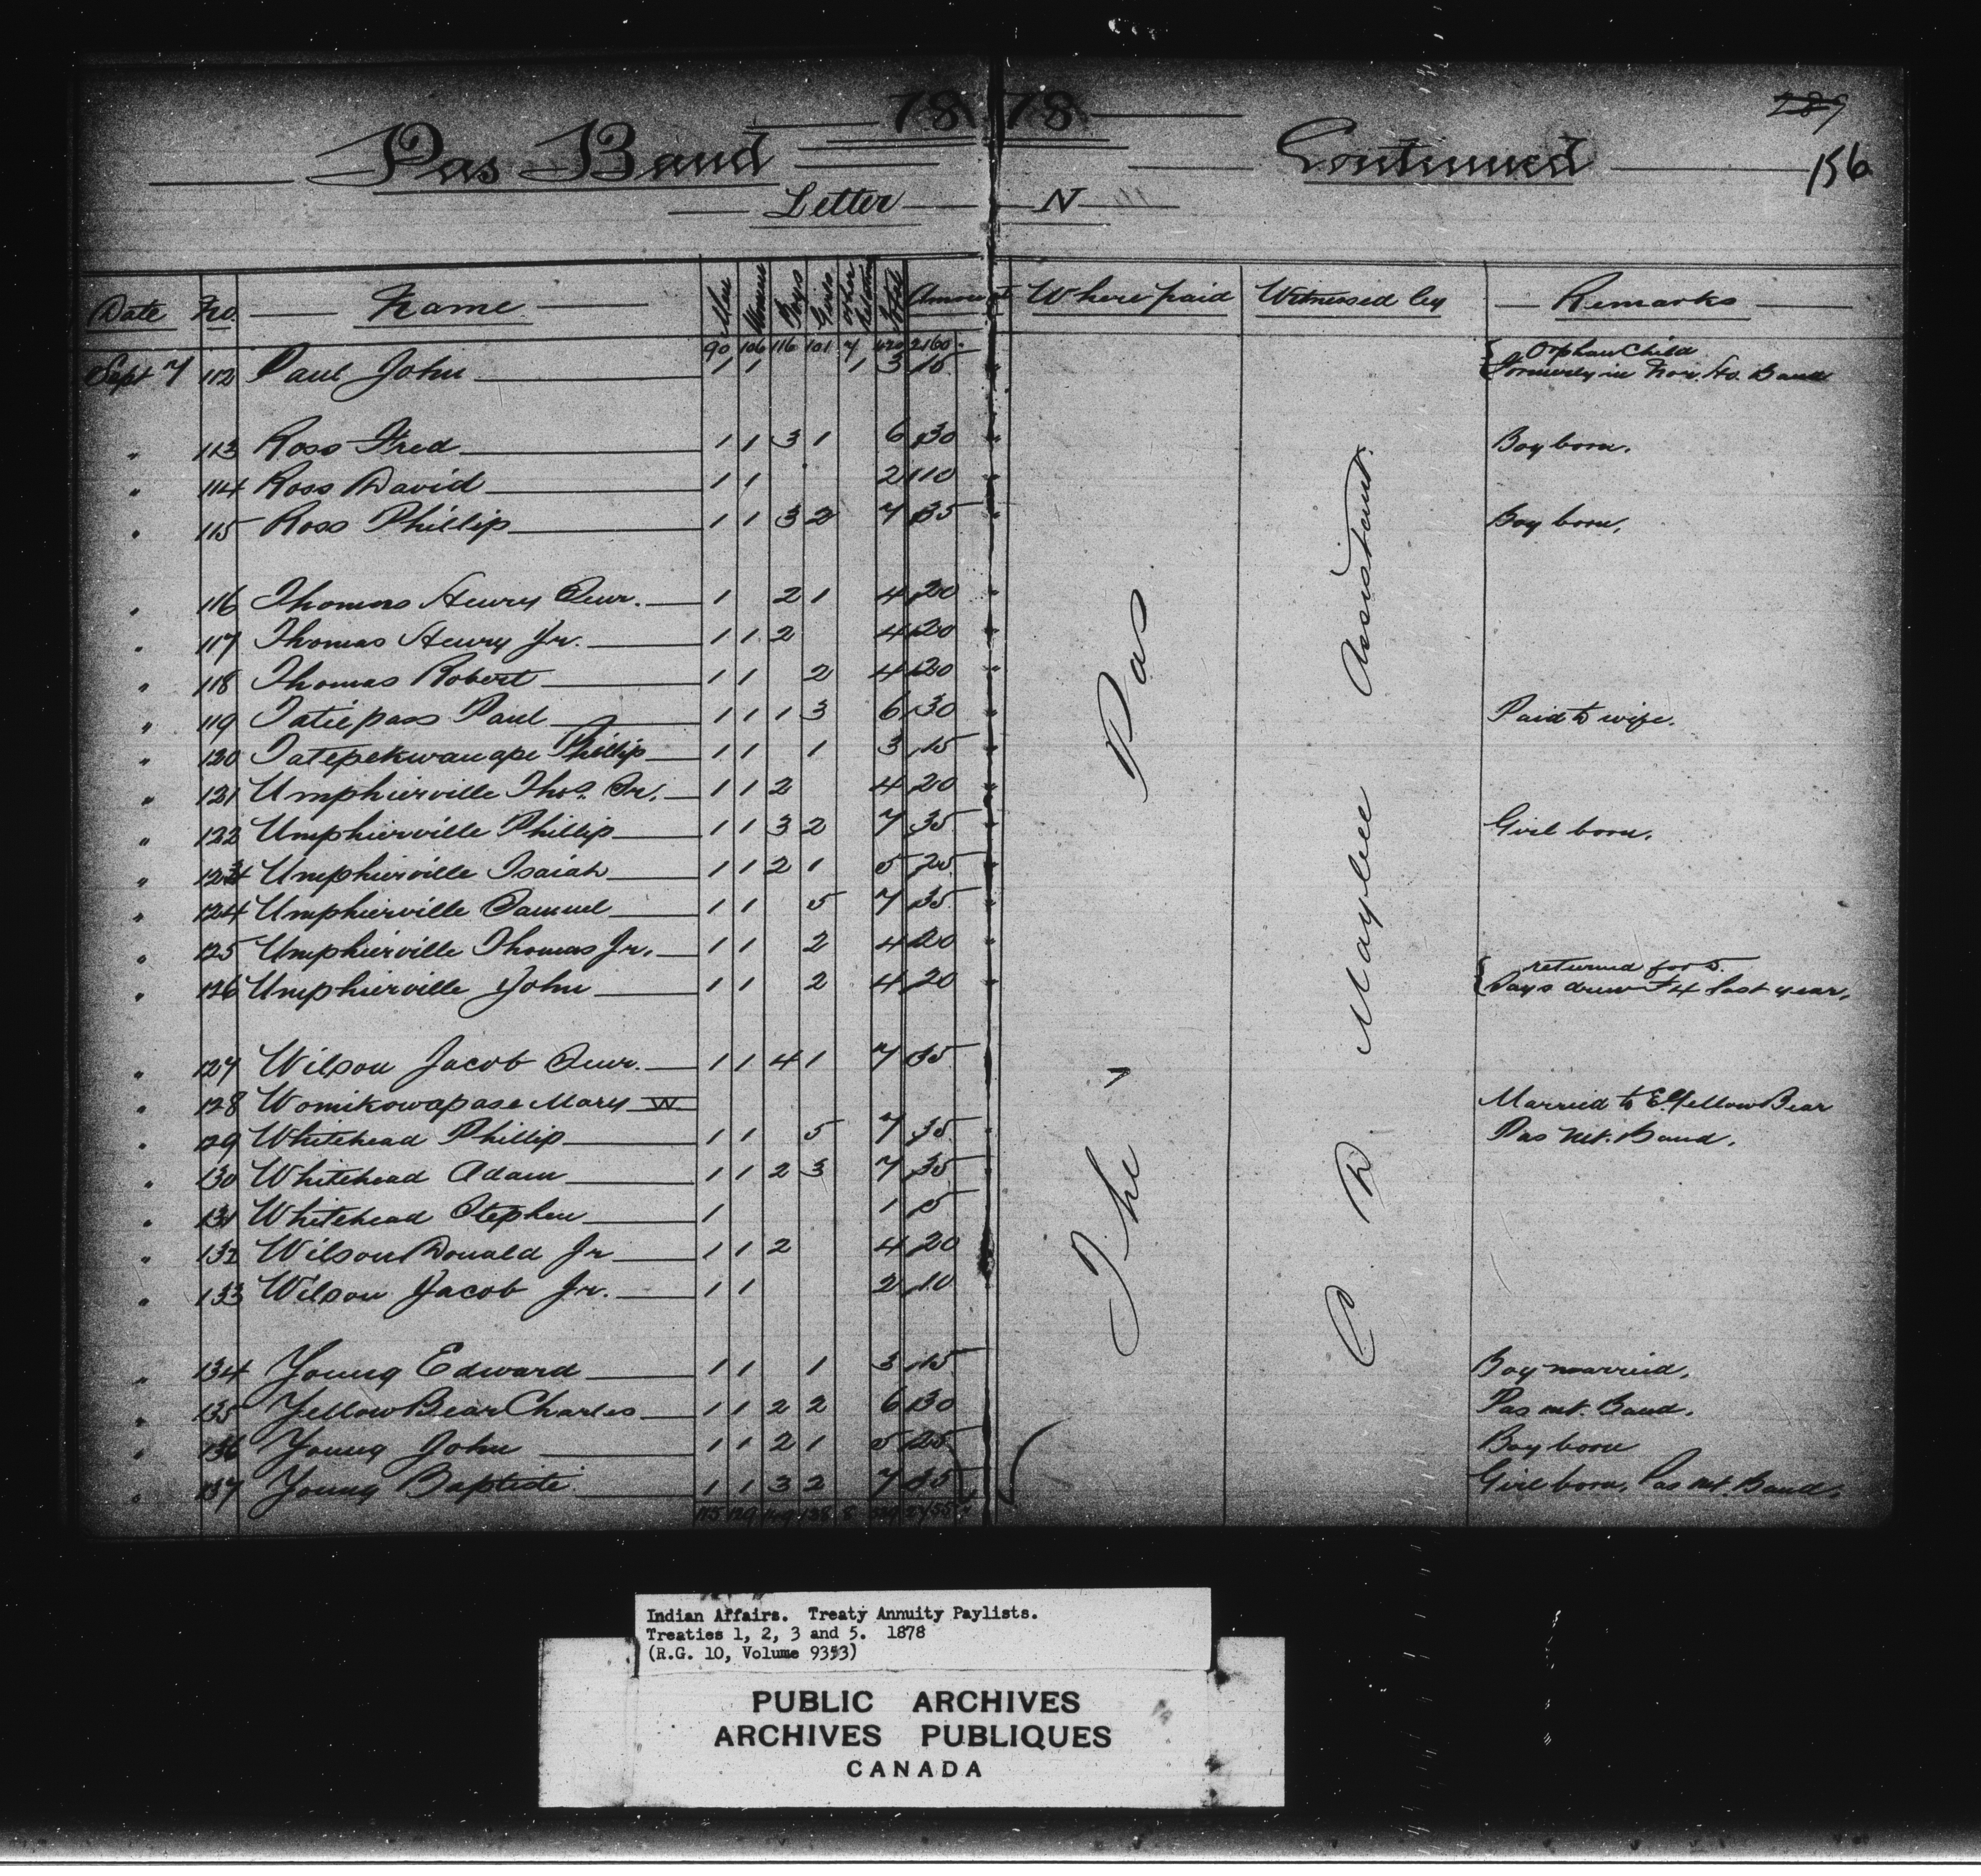 1878
289
Pas Band Continued 156
Letter N
Date No. Name Men Women Boys Girls Other Relations Total Amount Where paid Witnessed by Remarks
90 106 116 101 7 420 2160
Sept 7 112 Paul John 1 1 1 3 15 { Orphan Child
formerly in Nor. Ho. Band
" 113 Ross Fred 1 1 3 1 6 30 " Boy born.
" 114 Ross David 1 1 2 10 "
" 115 Ross Phillip 1 1 3 2 7 35 " Boy born,
" 116 Thomas Henry Senr. 1 2 1 4 20 "
" 117 Thomas Henry Jr. 1 1 2 4 20 "
" 118 Thomas Robert 1 1 2 4 20 "
" 119 Tatiepass Paul 1 1 1 3 6 30 " Paid to wife.
" 120 Tatepekwanape Phillip 1 1 1 3 15 "
" 121 Umphierville Thos. Sr. 1 1 2 4 20 "
" 122 Umphierville Phillip 1 1 3 2 7 35 " Girl born.
" 123 Umphierville Isaiah 1 1 2 1 5 25 "
" 124 Umphierville Samuel 1 1 5 7 35 "
" 125 Umphierville Thomas Jr. 1 1 2 4 20 "
" 126 Umphierville John 1 1 2 4 20 " { returned for 5.
Says drew F 4 last year.
" 127 Wilson Jacob Senr. 1 1 4 1 7 35 "
" 128 Womikowapase Mary W Married to E. Yellow Bear
" 129 Whitehead Phillip 1 1 5 7 35 " Pas Mt. Band.
" 130 Whitehead Adam 1 1 2 3 7 35 "
" 131 Whitehead Stephen 1 1 5 "
" 132 Wilson Donald Jr 1 1 2 4 20
" 133 Wilson Jacob Jr. 1 1 2 10
" 134 Young Edward 1 1 1 3 15 Boy married.
" 135 Yellow Bear Charles 1 1 2 2 6 30 Pas Mt. Band.
" 136 Young John 1 1 2 1 5 25 Boy born
" 137 Young Baptiste 1 1 3 2 7 35 Girl born, Pas Mt. Band.
The Pas
C D Maybee Assistant.
Indian Affairs. Treaty Annuity Paylists.
Treaties 1, 2, 3 and 5. 1878
(R.G. 10, Volume 9353)
PUBLIC ARCHIVES
ARCHIVES PUBLIQUES
CANADA